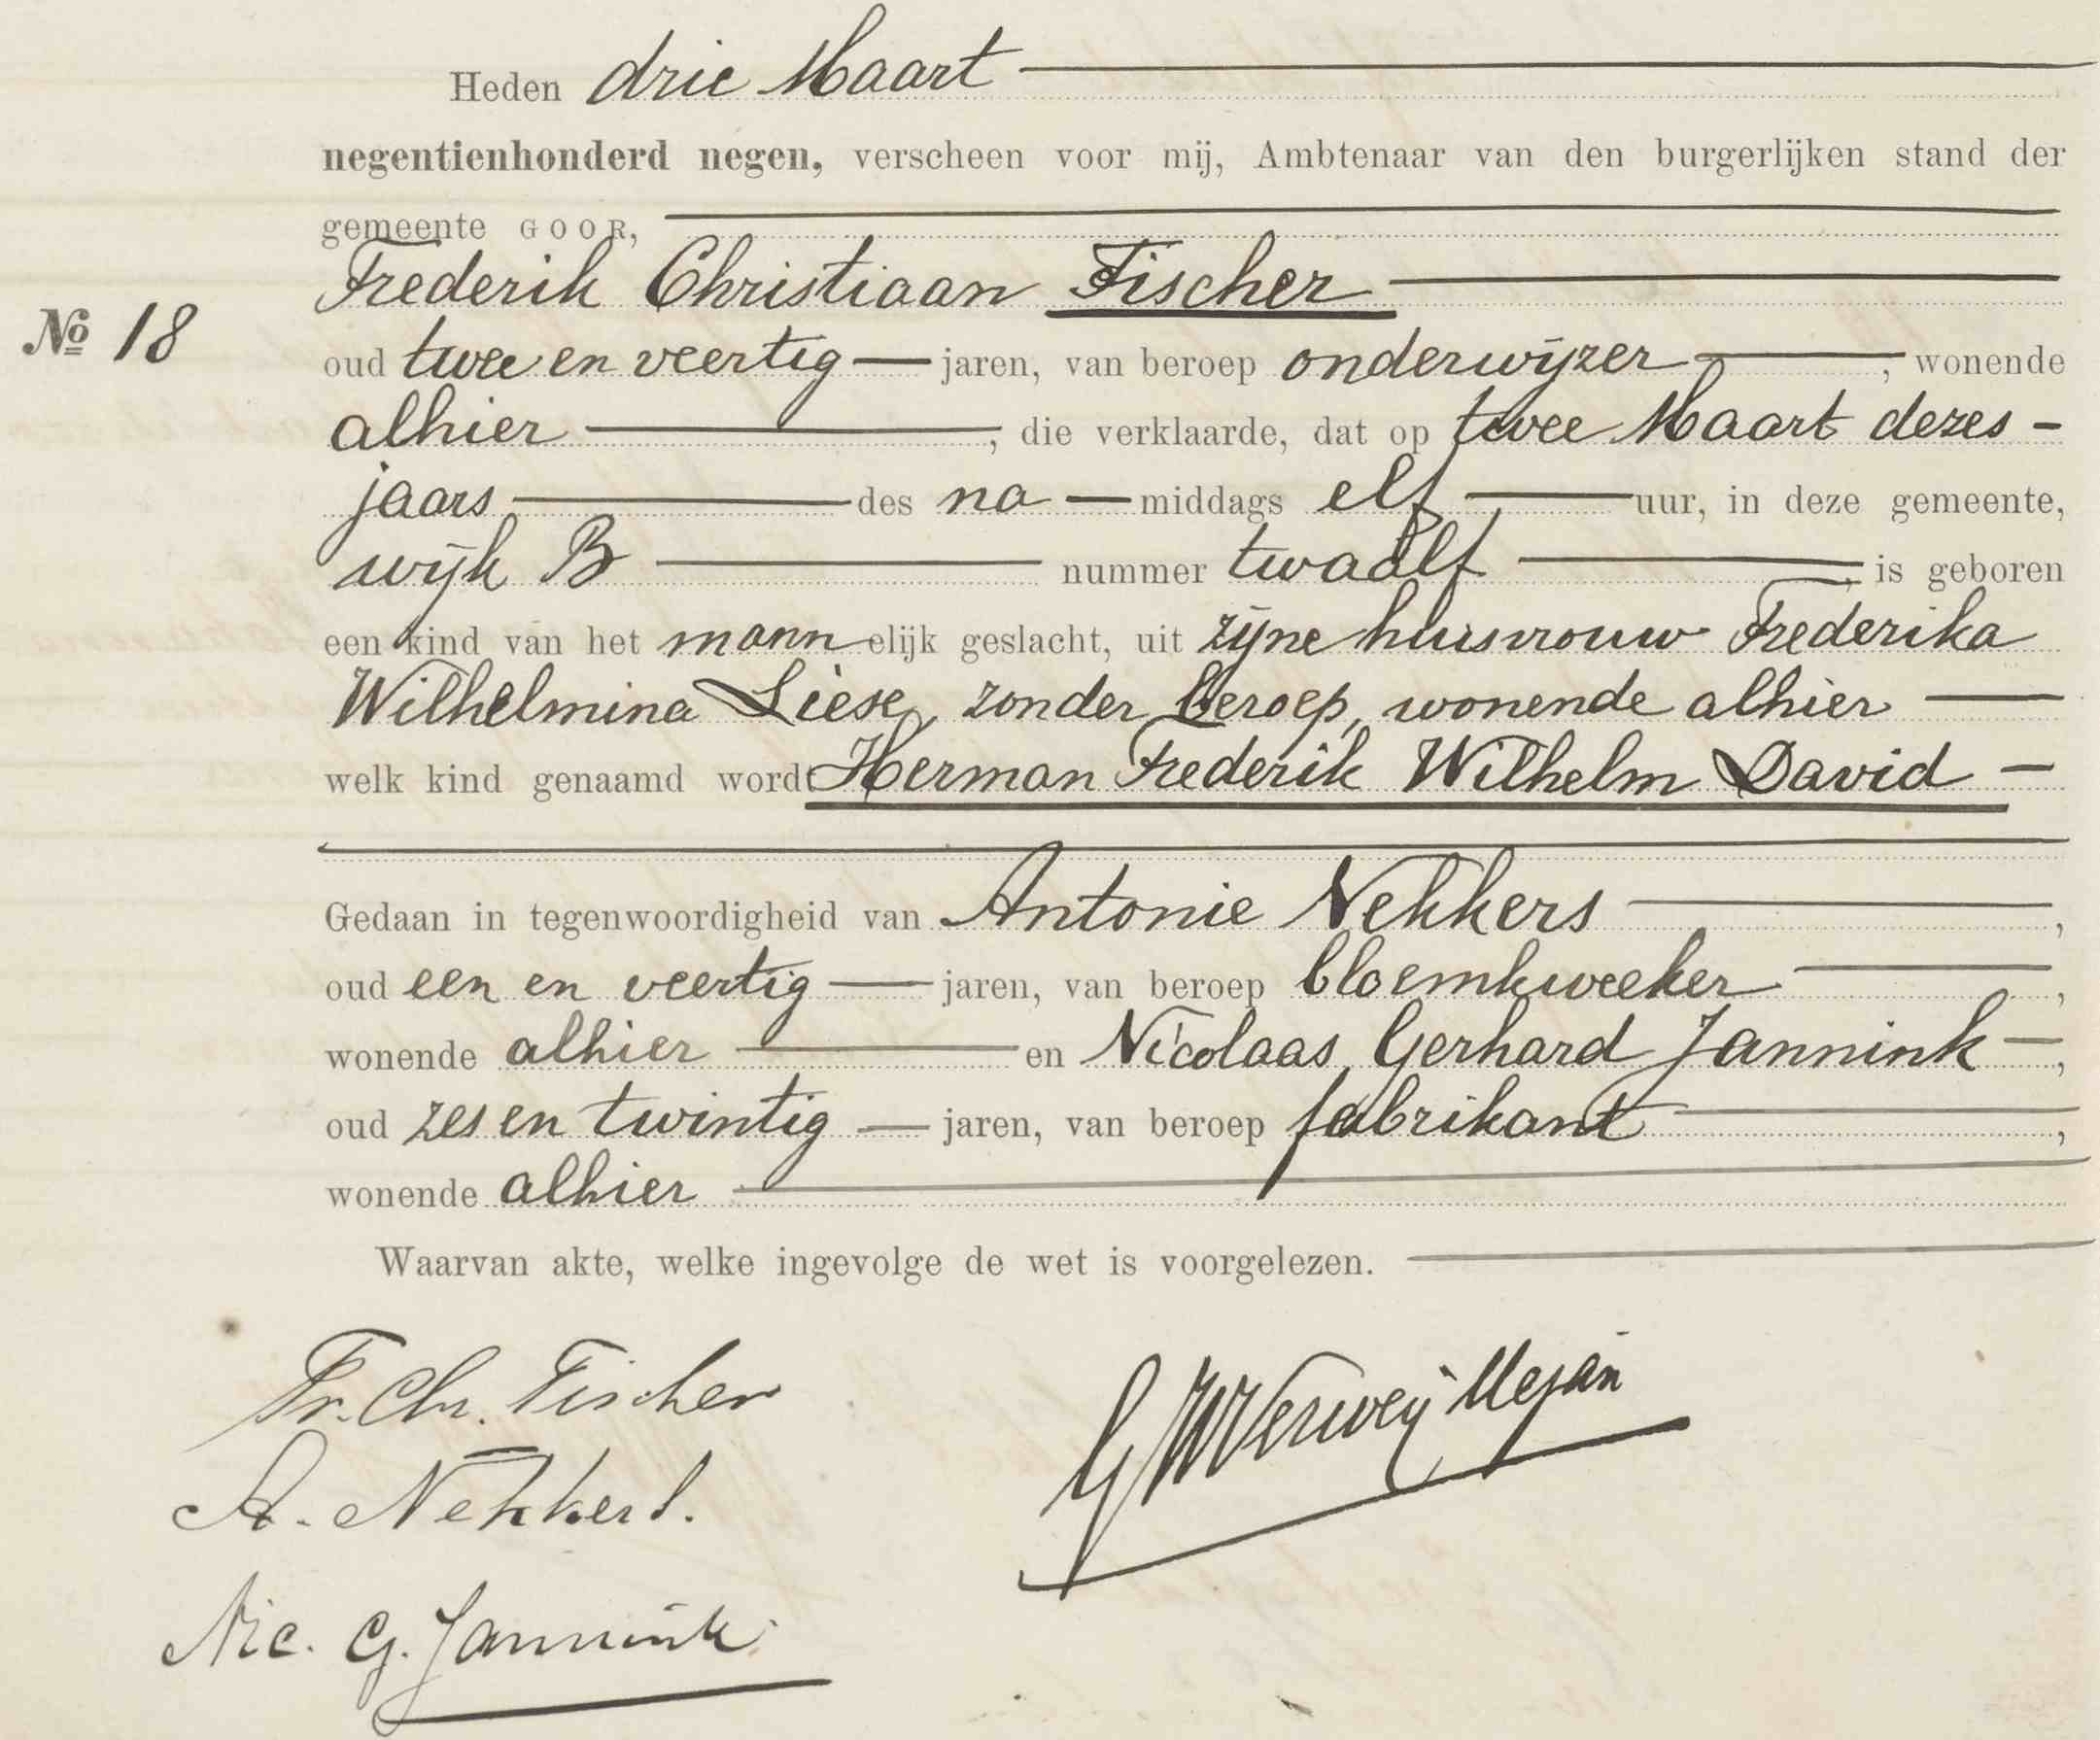 Heden drie Maart
negentienhonderd negen, verscheen voor mij, Ambtenaar van den burgerlijken stand der
gemeente GOOR,
Frederik Christiaan Fischer
No 18
oud twee en veertig jaren, van beroep onderwijzer, wonende
alhier, die verklaarde, dat op twee Maart dezes-
jaars des na middags elf uur, in deze gemeente,
wijk B nummer twaalf, is geboren
een kind van het mannelijk geslacht, uit zijne huisvrouw Frederika
Wilhelmina Liese, zonder beroep, wonende alhier
welk kind genaamd wordt Herman Frederik Wilhelm David
Gedaan in tegenwoordigheid van Antonie Nekkers,
oud een en veertig jaren, van beroep bloemkweeker,
wonende alhier en Nicolaas Gerhard Jannink,
oud zes en twintig jaren, van beroep fabrikant,
wonende alhier
Waarvan akte, welke ingevolge de wet is voorgelezen.
Fr. Chr. Fischer
GWVerweij Mejan
A. Nekkers.
Nic. G. Jannink